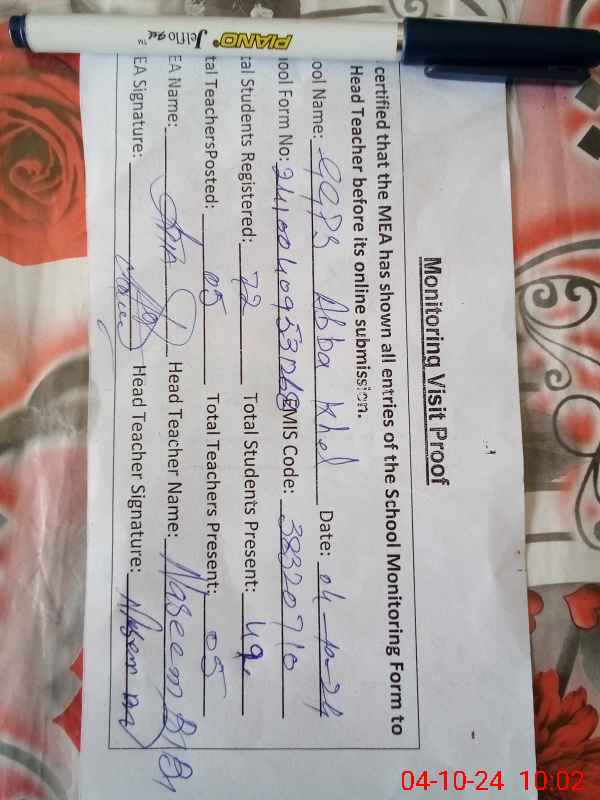 PIANO® Jelflo gel ™
Monitoring Visit Proof
certified that the MEA has shown all entries of the School Monitoring Form to
Head Teacher before its online submission.
ool Name: GGPS Abba Khel Date: 04-10-24
ool Form No: EMIS Code: 38320710
tal Students Registered: 72 Total Students Present: 49
tal TeachersPosted: 05 Total Teachers Present: 05
EA Name: Head Teacher Name: Naseem BiBi
EA Signature: Head Teacher Signature: Naseem
04-10-24 10:02